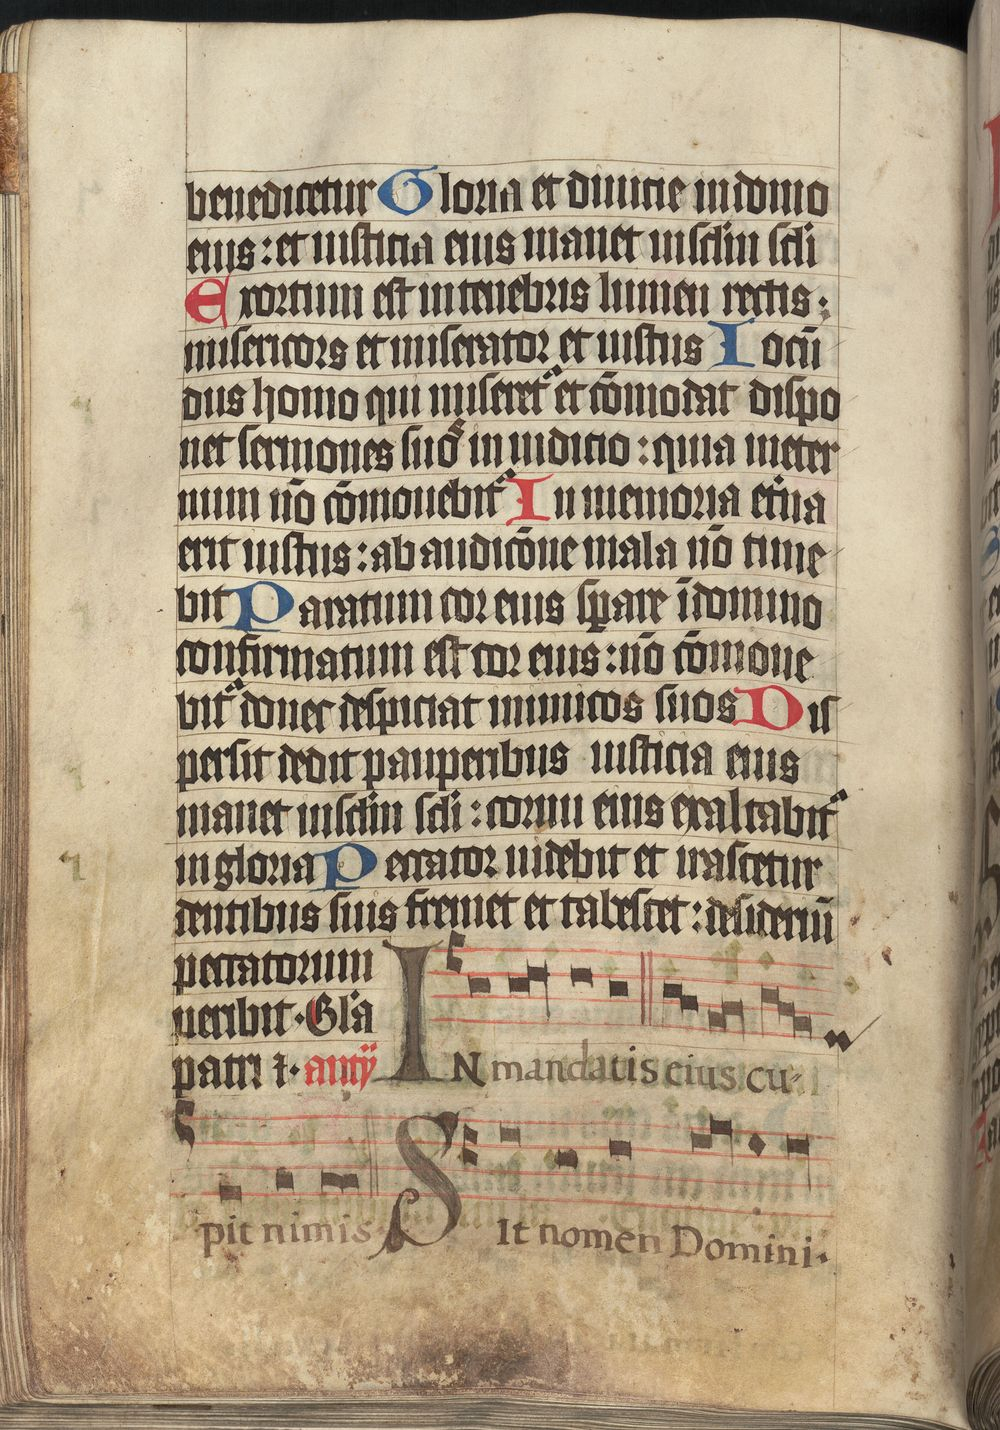 benedicetur Gloria et diuicie in domo
eius : et iusticia eius manet in sclm scli
Exortum est in tenebris lumen rectis :
misericors et miserator et iustus Iocū
dus homo qui miseret' et cōmodat dispo
net sermones suos in iudicio : quia in eter
num nō cōmouebit' In memoria et'na
erit iustus : ab audicōne mala nō time
bit Paratum cor eius sperare ī domino
confirmatum est cor eius : nō cōmoue
bit' donec despiciat inimicos suos Dis
persit dedit pauperibus iusticia eius
manet in sclm scli : cornu eius exaltabit'
in gloria Peccator uidebit et irascetur
dentibus suis fremet et tabescet : desideriū
peccatorum
peribit · Gl'a
patri ⁊ · antiᵃ IN mandatis eius cu-
pit nimis SIt nomen Domini ·